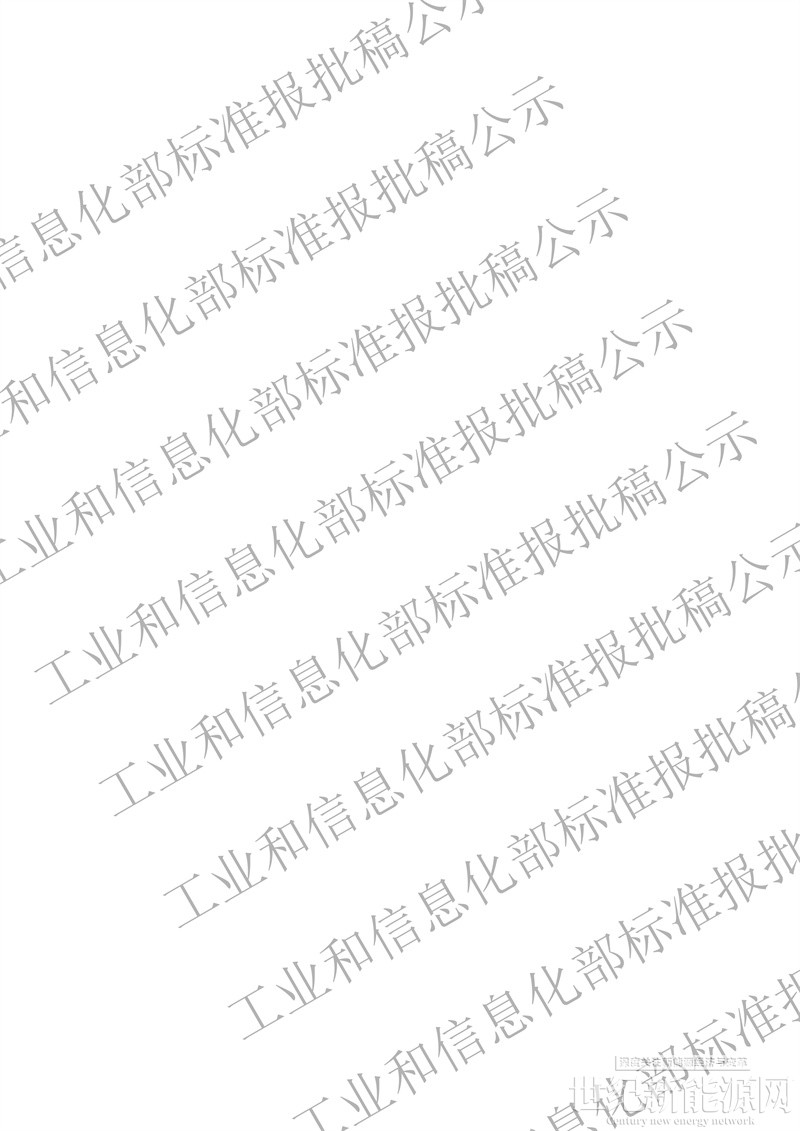 信息化部标准报批稿公
和信息化部标准报批稿公示
工业和信息化部标准报批稿公示
工业和信息化部标准报批稿公示
工业和信息化部标准报批稿公示
工业和信息化部标准报批稿公示
工业和信息化部标准报批稿公
工业和信息化部标准报批
工业和信息化部标准报
世纪新能源网
Century new energy network